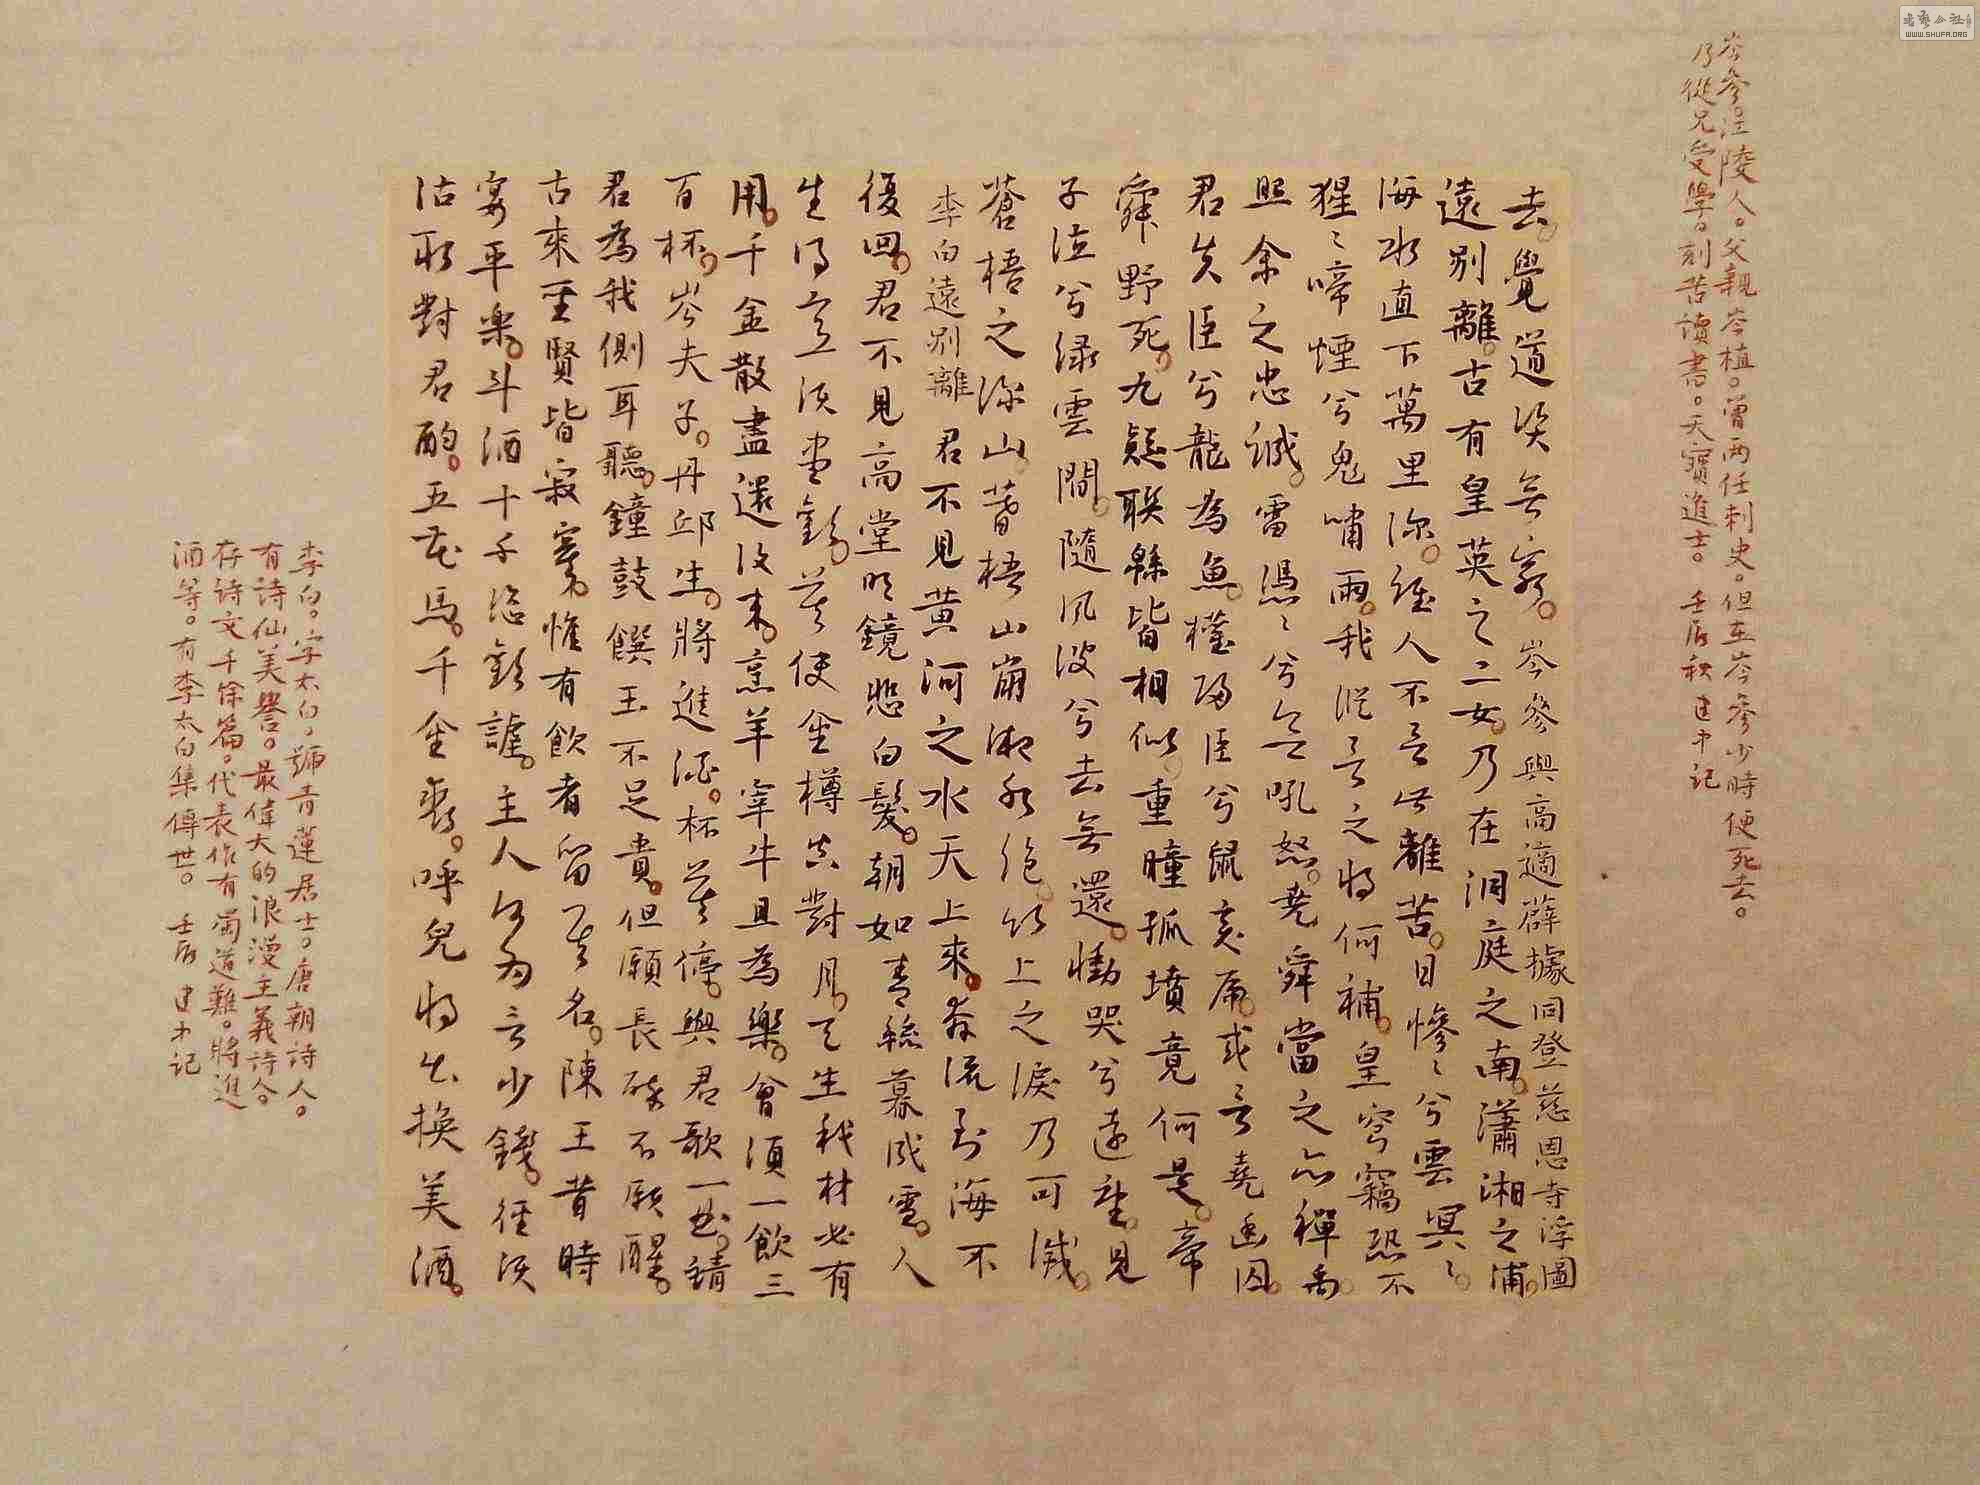 岑參。江陵人。父親岑植。曾兩任刺史。但在岑參少時便死去。
乃從兄受學。刻苦讀書。天寶進士。壬辰秋建中記
去。覺道資無窮。岑參與高適薛據同登慈恩寺浮圖
遠别離。古有皇英之二女。乃在洞庭之南。瀟湘之浦。
海水直下萬里深。誰人不言此離苦。日慘〻兮雲冥〻。
猩〻啼煙兮鬼嘯雨。我縱言之將何補。皇穹竊恐不
照余之忠誠。雷憑〻兮欲吼怒。堯舜當之亦禪禹。
君失臣兮龍為魚。權歸臣兮鼠變虎。或言堯幽囚。
舜野死。九疑聯綿皆相似。重瞳孤墳竟何是。帝
子泣兮绿雲間。隨风波兮去無還。慟哭兮遠望。見
蒼梧之深山。蒼梧山崩湘水絶。竹上之淚乃可滅。
李白遠别離 君不見黄河之水天上來。奔流到海不
復回。君不見高堂明鏡悲白髮。朝如青絲暮成雪。人
生得意须盡歡。莫使金樽空對月。天生我材必有
用。千金散盡還復来。烹羊宰牛且為樂。會須一飲三
百杯。岑夫子。丹邱生。將進酒。杯莫停。與君歌一曲。請
君為我側耳聽。鐘鼓饌玉不足貴。但願長醉不願醒。
古來聖賢皆寂寞。惟有飲者留其名。陳王昔時
宴平樂。斗酒十千恣歡謔。主人何為言少錢。徑须
沽取對君酌。五花馬。千金裘。呼兒將出換美酒。
李白。字太白。號青蓮居士。唐朝詩人。
有詩仙美譽。最偉大的浪漫主義詩人。
存詩文千餘篇。代表作有蜀道難。將進
酒等。有李太白集傳世。壬辰 建中记
書藝公社
WWW.SHUFA.ORG